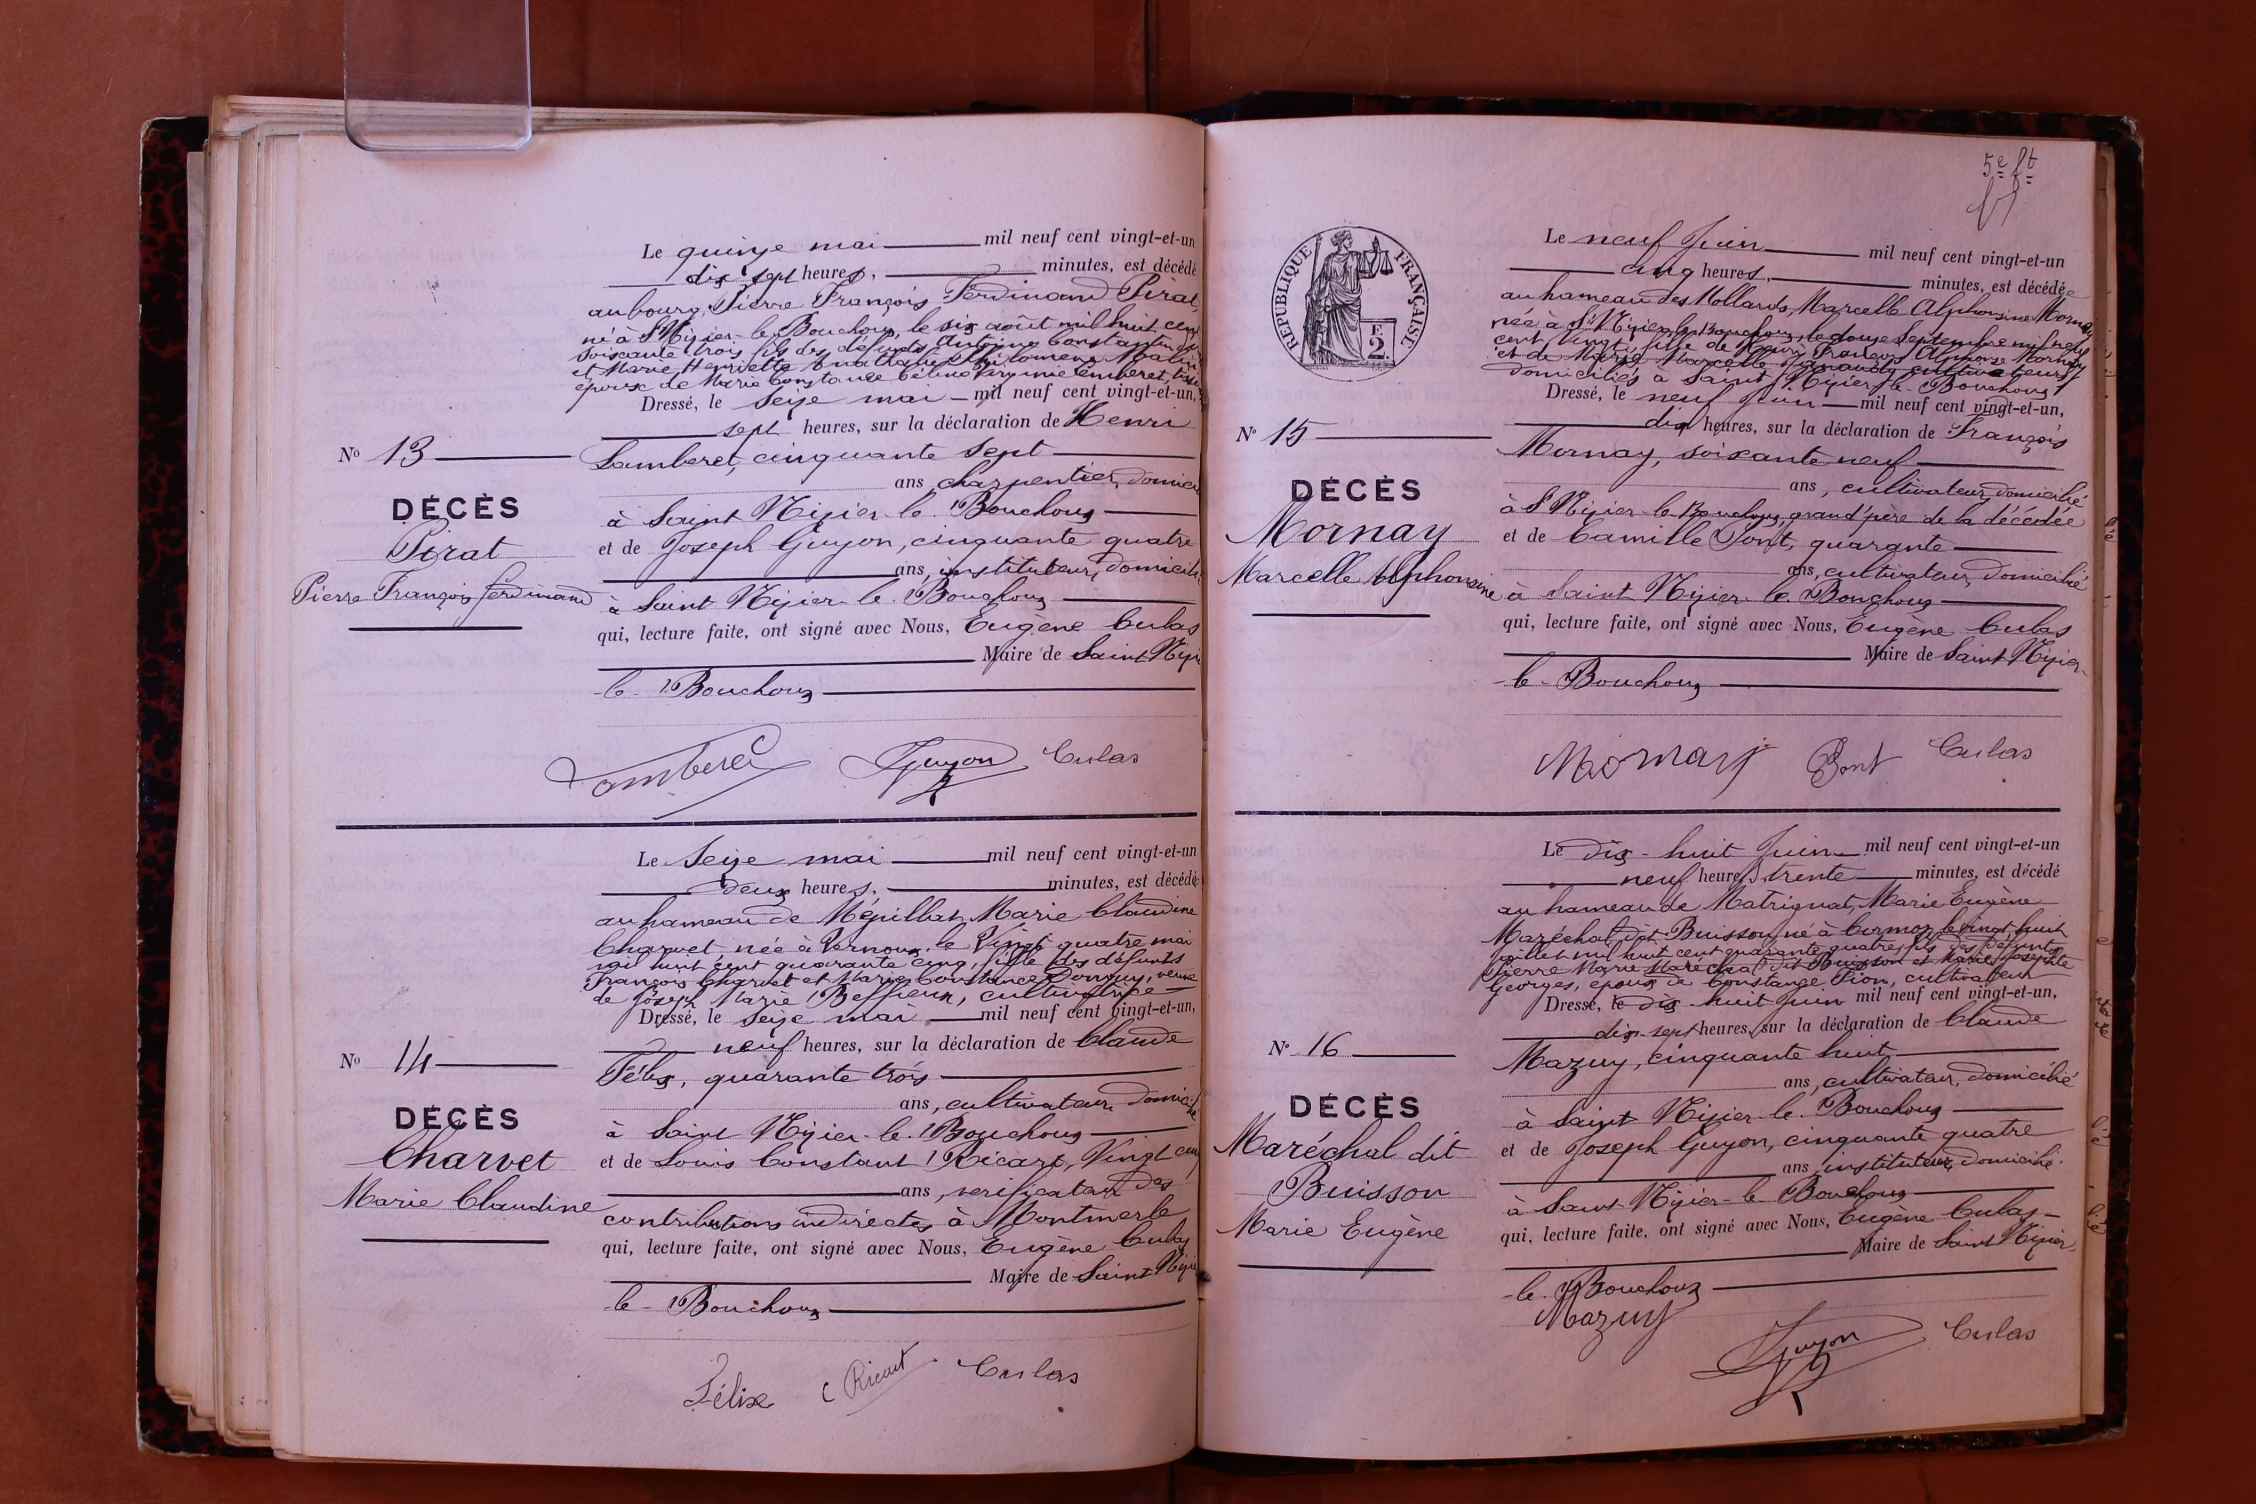 Le quinze mai mil neuf cent vingt-et-un
dix sept heures, minutes, est décédé
au bourg, Pierre François Ferdinand Pirat,
né à St Nizier-le-Bouchoux, le six août mil huit cent
soixante trois, fils des défunts Antoine Constantin
et Marie Henriette Philomène
époux de Marie Constance Virginie Lamberet,
Dressé, le seize mai mil neuf cent vingt-et-un,
sept heures, sur la déclaration de Henri
No 13
Lamberet, cinquante sept
ans, charpentier, domicilié
DÉCÈS
à Saint Nizier-le-Bouchoux
Pirat
et de Joseph Guyon, cinquante quatre
ans, instituteur, domicilié
Pierre François Ferdinand
à Saint Nizier-le-Bouchoux
qui, lecture faite, ont signé avec Nous, Eugène Culas
Maire de Saint Nizier
-le-Bouchoux
Lamberet Guyon Culas
Le seize mai mil neuf cent vingt-et-un
deux heures, minutes, est décédée
au hameau de Mépillat, Marie Claudine
Charvet, née à Vernoux, le vingt quatre mai
mil huit cent quarante cinq, fille des défunts
François Charvet et Marie Constance Donguy, veuve
de Joseph Marie Beffieux, cultivatrice
Dressé, le seize mai mil neuf cent vingt-et-un,
neuf heures, sur la déclaration de Claude
No 14
Félix, quarante trois
ans, cultivateur, domicilié
DÉCÈS
à Saint Nizier-le-Bouchoux
Charvet
et de Louis Constant Ricart, Vingt cinq
ans, vérificateur des
Marie Claudine
contributions indirectes à Montmerle
qui, lecture faite, ont signé avec Nous, Eugène Culas
Maire de Saint Nizier
-le-Bouchoux
Félix C Ricart Culas
5e ft
RÉPUBLIQUE FRANÇAISE
2
Le neuf Juin mil neuf cent vingt-et-un
cinq heures, minutes, est décédée
au hameau des Mollards, Marcelle Alphonsine Mornay,
née à St Nizier-le-Bouchoux, le douze Septembre mil neuf
cent vingt, fille de Henri François Alphonse Mornay
et de Maria Marcelle cultivateurs
domiciliés à Saint Nizier-le-Bouchoux
Dressé, le neuf Juin mil neuf cent vingt-et-un,
dix heures, sur la déclaration de François
No 15
Mornay, soixante neuf
ans, cultivateur, domicilié
DÉCÈS
à St Nizier-le-Bouchoux, grand'père de la décédée
Mornay
et de Camille Pont, quarante
ans, cultivateur, domicilié
Marcelle Alphonsine
à Saint Nizier-le-Bouchoux
qui, lecture faite, ont signé avec Nous, Eugène Culas
Maire de Saint Nizier-
-le-Bouchoux
Mornay Pont Culas
Le dix-huit Juin mil neuf cent vingt-et-un
neuf heures trente minutes, est décédé
au hameau de Matrignat, Marie Eugène
Maréchal dit Buisson, né à Cormoz le vingt huit
juillet mil huit cent quarante quatre, fils des défunts
Pierre Marie Maréchal dit Buisson et Marie Josephte
Georges, époux de Constance Pion, cultivateur
Dressé, le dix-huit Juin mil neuf cent vingt-et-un,
dix-sept heures, sur la déclaration de Claude
No 16
Mazuy, cinquante huit
ans, cultivateur, domicilié
DÉCÈS
à Saint Nizier-le-Bouchoux
Maréchal dit
et de Joseph Guyon, cinquante quatre
ans, instituteur, domicilié
Buisson
à Saint Nizier-le-Bouchoux
Marie Eugène
qui, lecture faite, ont signé avec Nous, Eugène Culas
Maire de Saint Nizier-
-le-Bouchoux
Mazuy Guyon Culas